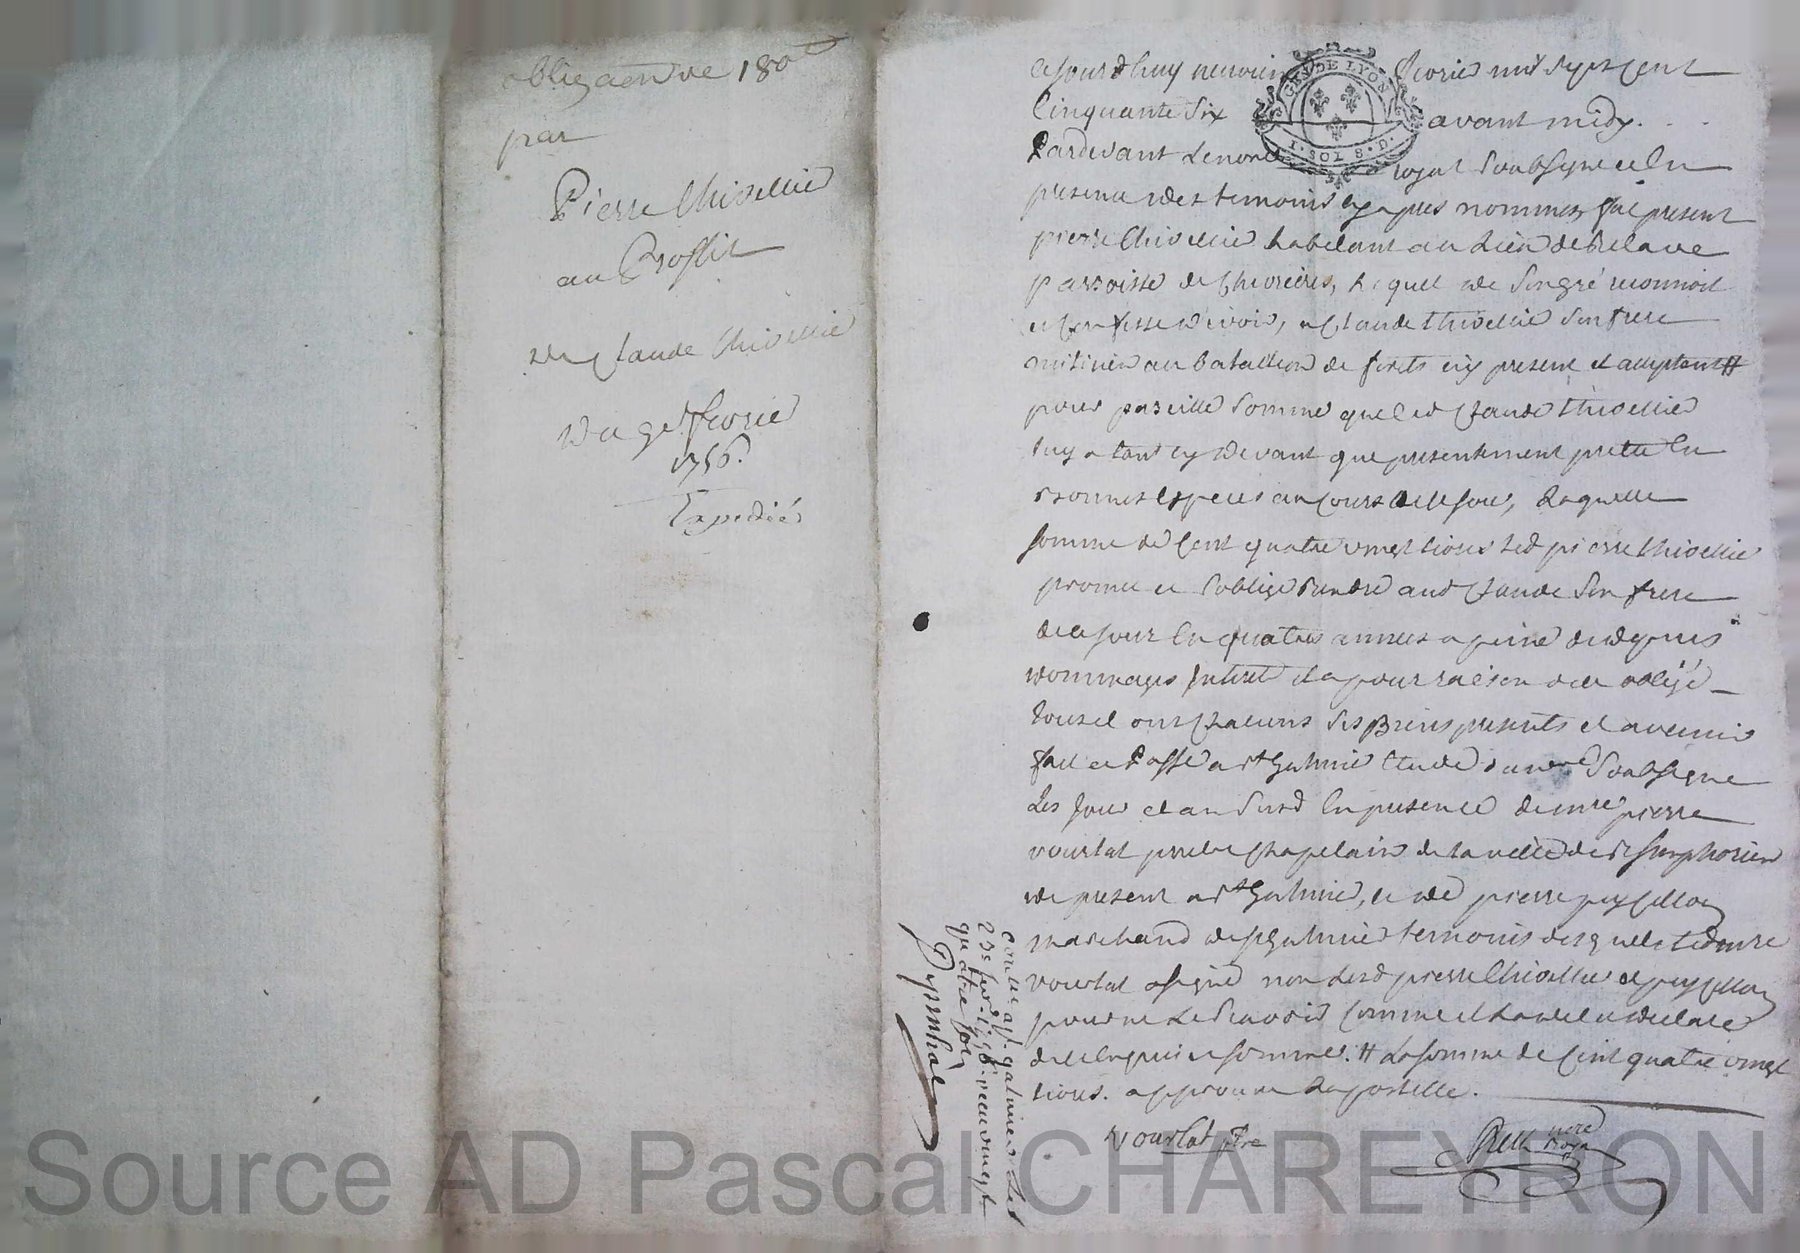 obligaon de 180
par
Pierre Thivellié
au Proffit
de Claude Thivellié
du 9e fevrie
1756.
Expedié
Ce jourd'huy neuvieme fevrie mil sept cent
Cinquante Six avant midy.
Pardevant Le notre royal soubsigné et En
presence des temoins cy apres nommez fut present
pierre Thivellié habitant au Lieu de
parroisse de Chevrieres, Lequel de son gré reconnoit
et Confesse devoir, a Claude Thivellié son frere
milicien au bataillon de forets icy present et acceptant #
pour pareille Somme que led Claude Thivellié
luy a tant cy devant que presentement prette En
bonnes Especes au Cours de ce jour, Laquelle
somme de Cent quatre vingt livres led pierre Thivellié
promet et s'oblige rendre aud Claude Son frere
de ce jour En quatre années a peine de depens
dommages Interet et a pour raison de ce obligé
tous et uns Chacuns ses Biens presents et avenir
fait et Passé a St Galmié Etude dud nore Soubsigné
Les jour et an Susd En presence de mre pierre
vourlat prebre Chapelain de la ville de St Simphorien
de present a St Galmié, et de pierre
marchand de St Galmié temoins desquels led mre
vourlat a signé non Lesd pierre Thivellié et
pour ne Le Scavoir Comme il L'a declaré
de ce Enquis et sommés. # La somme de Cent quatre vingt
livres. approuve La postille.
vourlat ptre
nore royal
Controllé a St. galmier Le
23e fevr. 1756. receu vingt
quatre sols
Dysernhal
SOLS
DE LYON
Source AD Pascal CHAREYRON